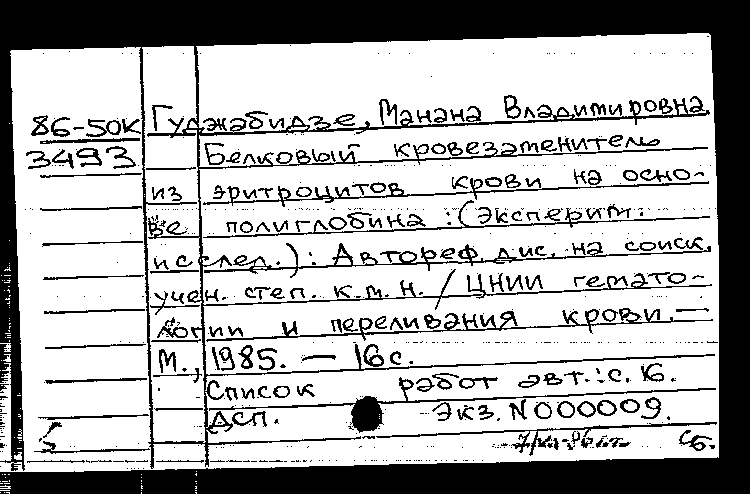 86-50К Гуджабидзе, Манана Владимировна
3493 Белковый кровезаменитель
из эритроцитов крови на осно-
ве полиглобина : (Эксперим.
исслед.) : Автореф. дис. на соиск.
учен. степ. к.м.н. / ЦНИИ гемато-
логии и переливания крови. —
М., 1985. — 16 с.
Список работ авт.: с. 16.
ДСП. Экз. N000009.
сб.